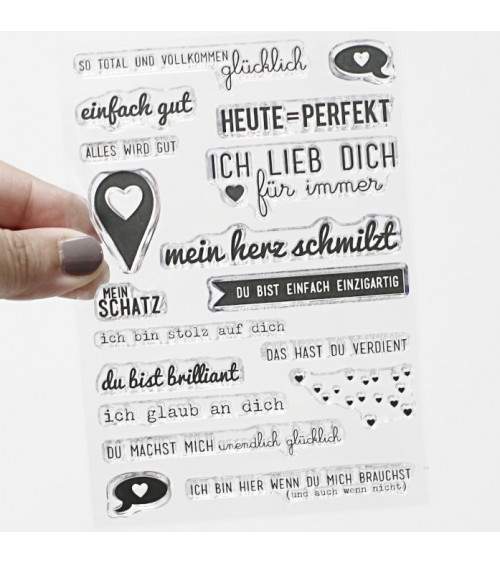 SO TOTAL UND VOLLKOMMEN glücklich
einfach gut
HEUTE=PERFEKT
ALLES WIRD GUT
ICH LIEB DICH
für immer
mein herz schmilzt
MEIN
SCHATZ
DU BIST EINFACH EINZIGARTIG
ich bin stolz auf dich
DAS HAST DU VERDIENT
du bist brilliant
ich glaub an dich
DU MACHST MICH unendlich glücklich
ICH BIN HIER WENN DU MICH BRAUCHST
(und auch wenn nicht)